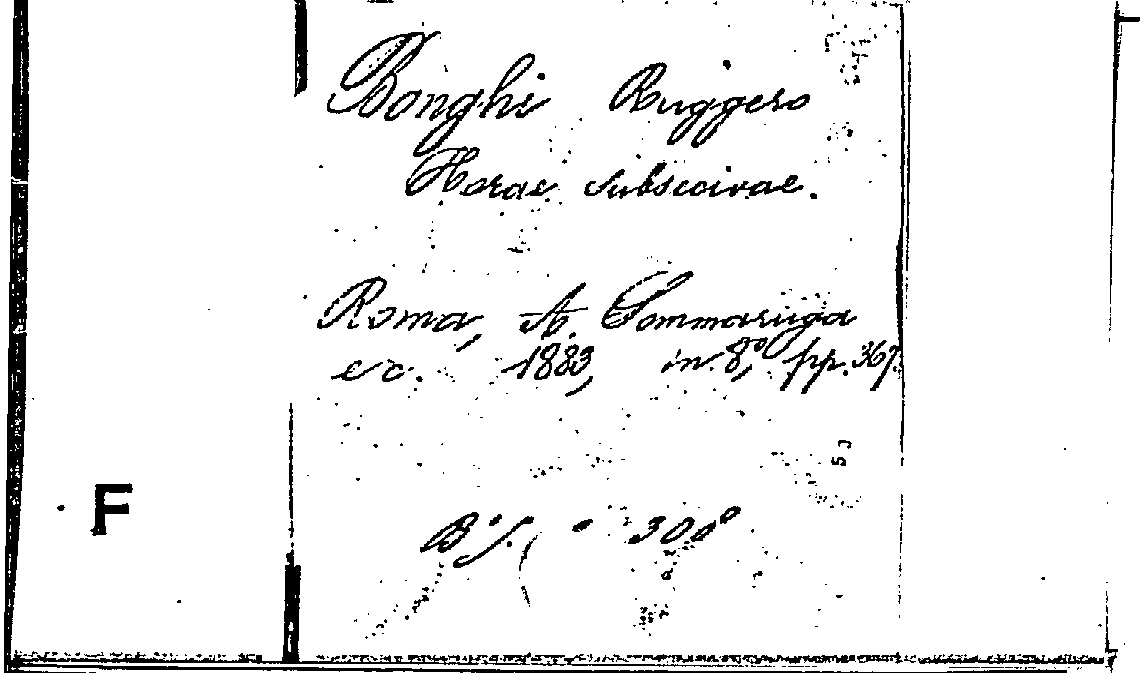 Bonghi Ruggero
Horae subsecivae.
Roma, A. Sommaruga
e c. 1883, in 8,° pp. 367.
53
F
300